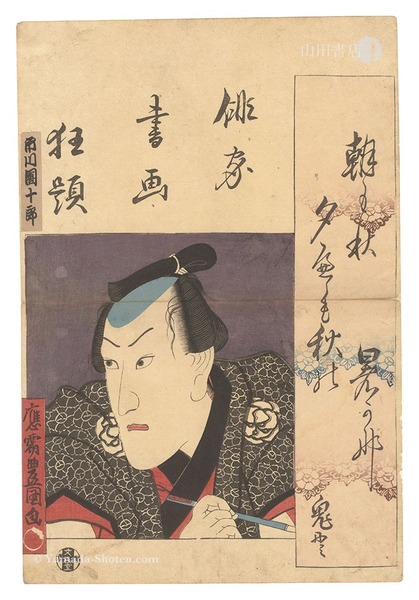 山田書店
朝も秋
夕へも秋の
暑さかな
俳家
書画
狂題
市川團十郎
應需豊國画
© Yamada-Shoten.com